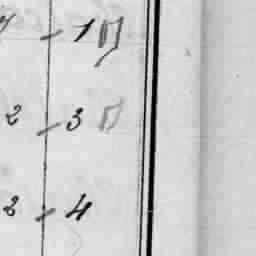 7 - 1
2 - 3
2 - 4